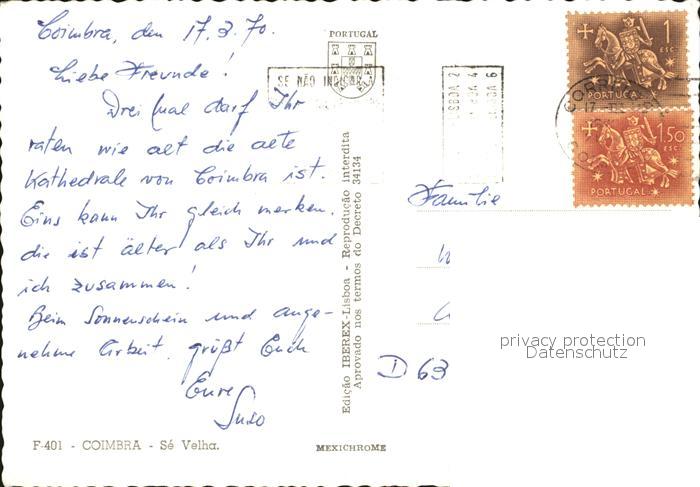 Coimbra, den 17.3.70.
Liebe Freunde!
Drei Mal darf Ihr
raten wie alt die alte
Kathedrale von Coimbra ist.
Eins kann Ihr gleich merken.
die ist älter als Ihr und
ich zusammen!
Beim Sonnenschein und ange-
nehme Arbeit, grüßt Euch
Eure
Suso
F-401 - COIMBRA - Sé Velha.
PORTUGAL
SE NÃO INDICAR
Edição IBEREX-Lisboa - Reprodução interdita
Aprovado nos termos do Decreto 34134
MEXICHROME
LISBOA 2
LISBOA 4
LISBOA 6
1
ESC.
PORTUGAL
1$50
ESC.
PORTUGAL
Familie
D 63
privacy protection
Datenschutz